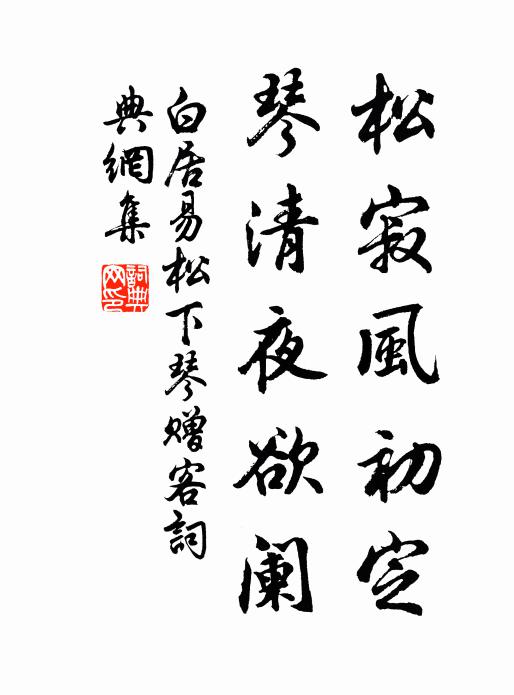 松寂風初定
琴清夜欲阑
白居易松下琴赠客詞
典網集
詞典網印